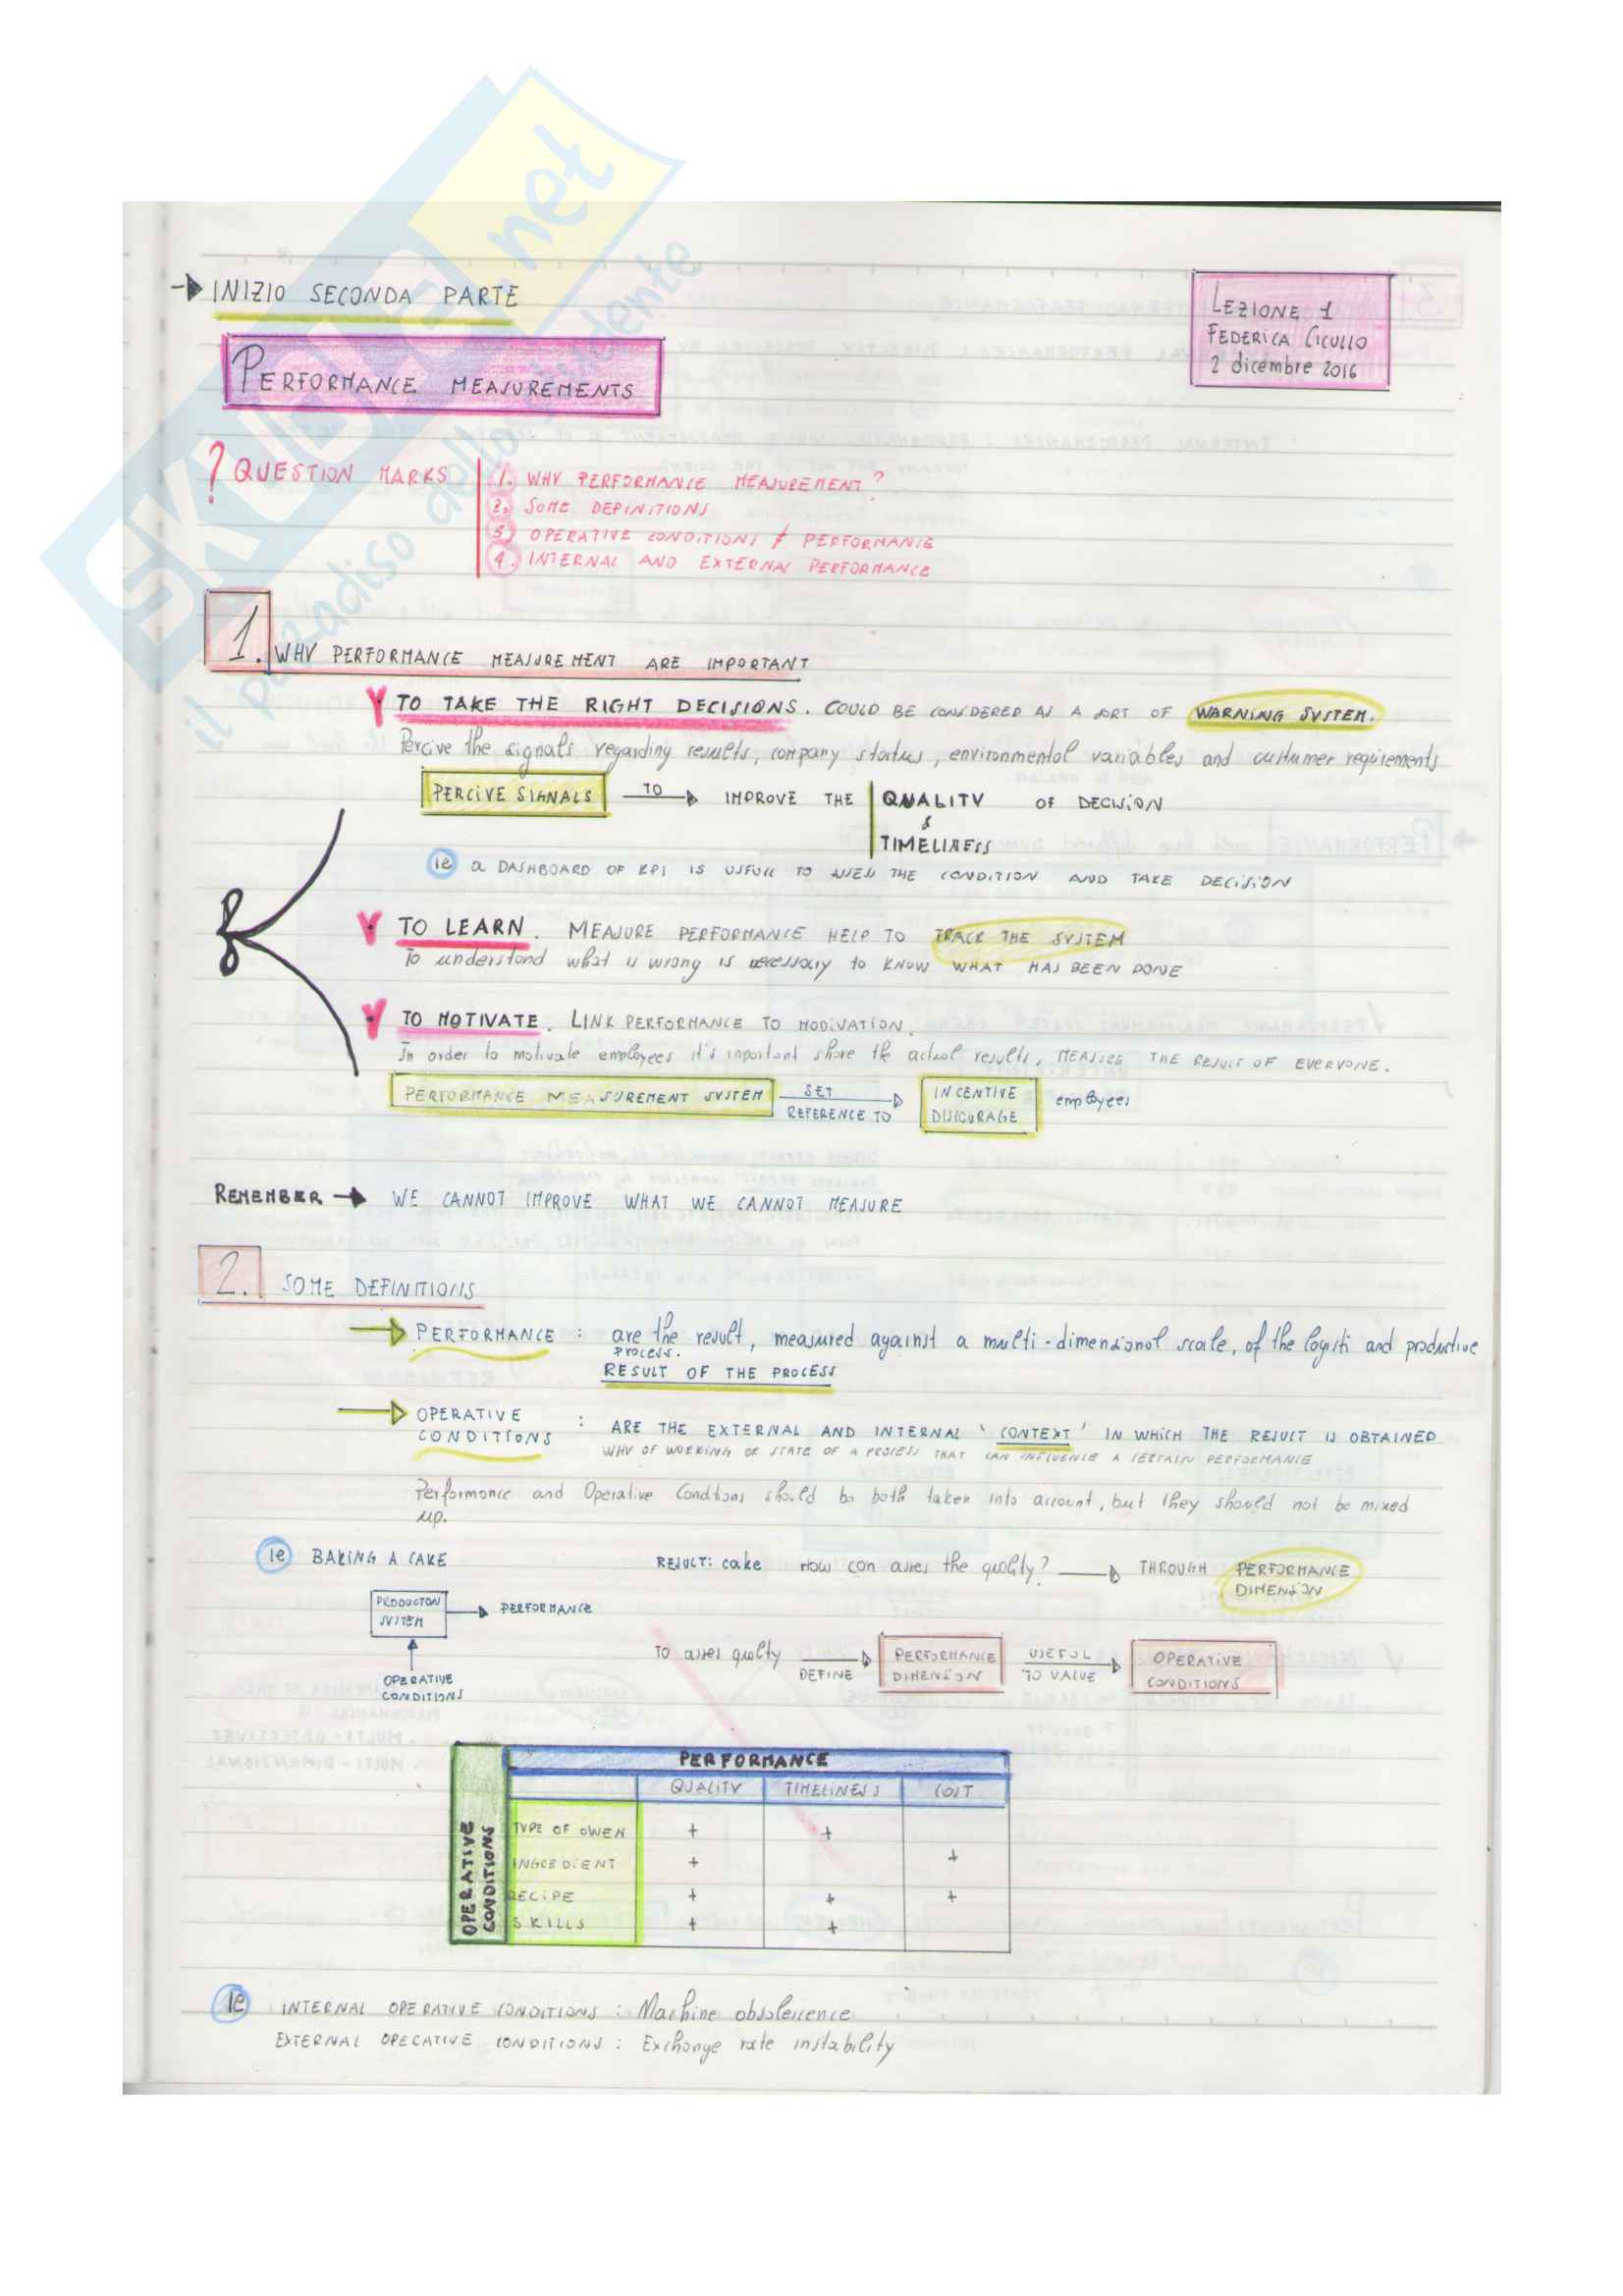 SKUOLA.net
il paradiso dello studente
INIZIO SECONDA PARTE
LEZIONE 1
FEDERICA CICULLO
2 dicembre 2016
PERFORMANCE MEASUREMENTS
? QUESTION MARKS
1. WHY PERFORMANCE MEASUREMENT?
2. SOME DEFINITIONS
3. OPERATIVE CONDITIONS ≠ PERFORMANCE
4. INTERNAL AND EXTERNAL PERFORMANCE
1. WHY PERFORMANCE MEASUREMENT ARE IMPORTANT
TO TAKE THE RIGHT DECISIONS. COULD BE CONSIDERED AS A SORT OF WARNING SYSTEM.
Percive the signals regarding results, company status, environmental variables and custumer requirements
PERCIVE SIGNALS TO IMPROVE THE QUALITY OF DECISION
&
TIMELINESS
ie a DASHBOARD OF KPI IS USFULL TO ASSES THE CONDITION AND TAKE DECISION
TO LEARN. MEASURE PERFORMANCE HELP TO TRACE THE SYSTEM
To understand what is wrong is necessary to KNOW WHAT HAS BEEN DONE
TO MOTIVATE. LINK PERFORMANCE TO MODIVATION.
In order to motivate employees it's inportant share the actual results, MEASURE THE RESULT OF EVERYONE.
PERFORMANCE MEASUREMENT SYSTEM SET REFERENCE TO INCENTIVE DISCURAGE employees
REMEMBER → WE CANNOT IMPROVE WHAT WE CANNOT MEASURE
2. SOME DEFINITIONS
PERFORMANCE : are the result, measured against a multi-dimensional scale, of the logisti and productive
PROCESS.
RESULT OF THE PROCESS
OPERATIVE CONDITIONS : ARE THE EXTERNAL AND INTERNAL 'CONTEXT' IN WHICH THE RESULT IS OBTAINED
WHY OF WORKING OR STATE OF A PROCESS THAT CAN INFLUENCE A CERTAIN PERFORMANCE
Performance and Operative Conditions should be both taken into account, but they should not be mixed
up.
ie BAKING A CAKE
RESULT: cake How can asses the quality? THROUGH PERFORMANCE DIMENSION
PRODUCTON SYSTEM → PERFORMANCE
OPERATIVE CONDITIONS
To asses quality DEFINE PERFORMANCE DIMENSION USEFUL TO VALUE OPERATIVE CONDITIONS
PERFORMANCE
QUALITY TIMELINESS COST
OPERATIVE CONDITIONS
TYPE OF OWEN + +
INGREDIENT + +
RECIPE + + +
SKILLS + +
ie INTERNAL OPERATIVE CONDITIONS : Machine obsolescence
EXTERNAL OPERATIVE CONDITIONS : Exchange rate instability